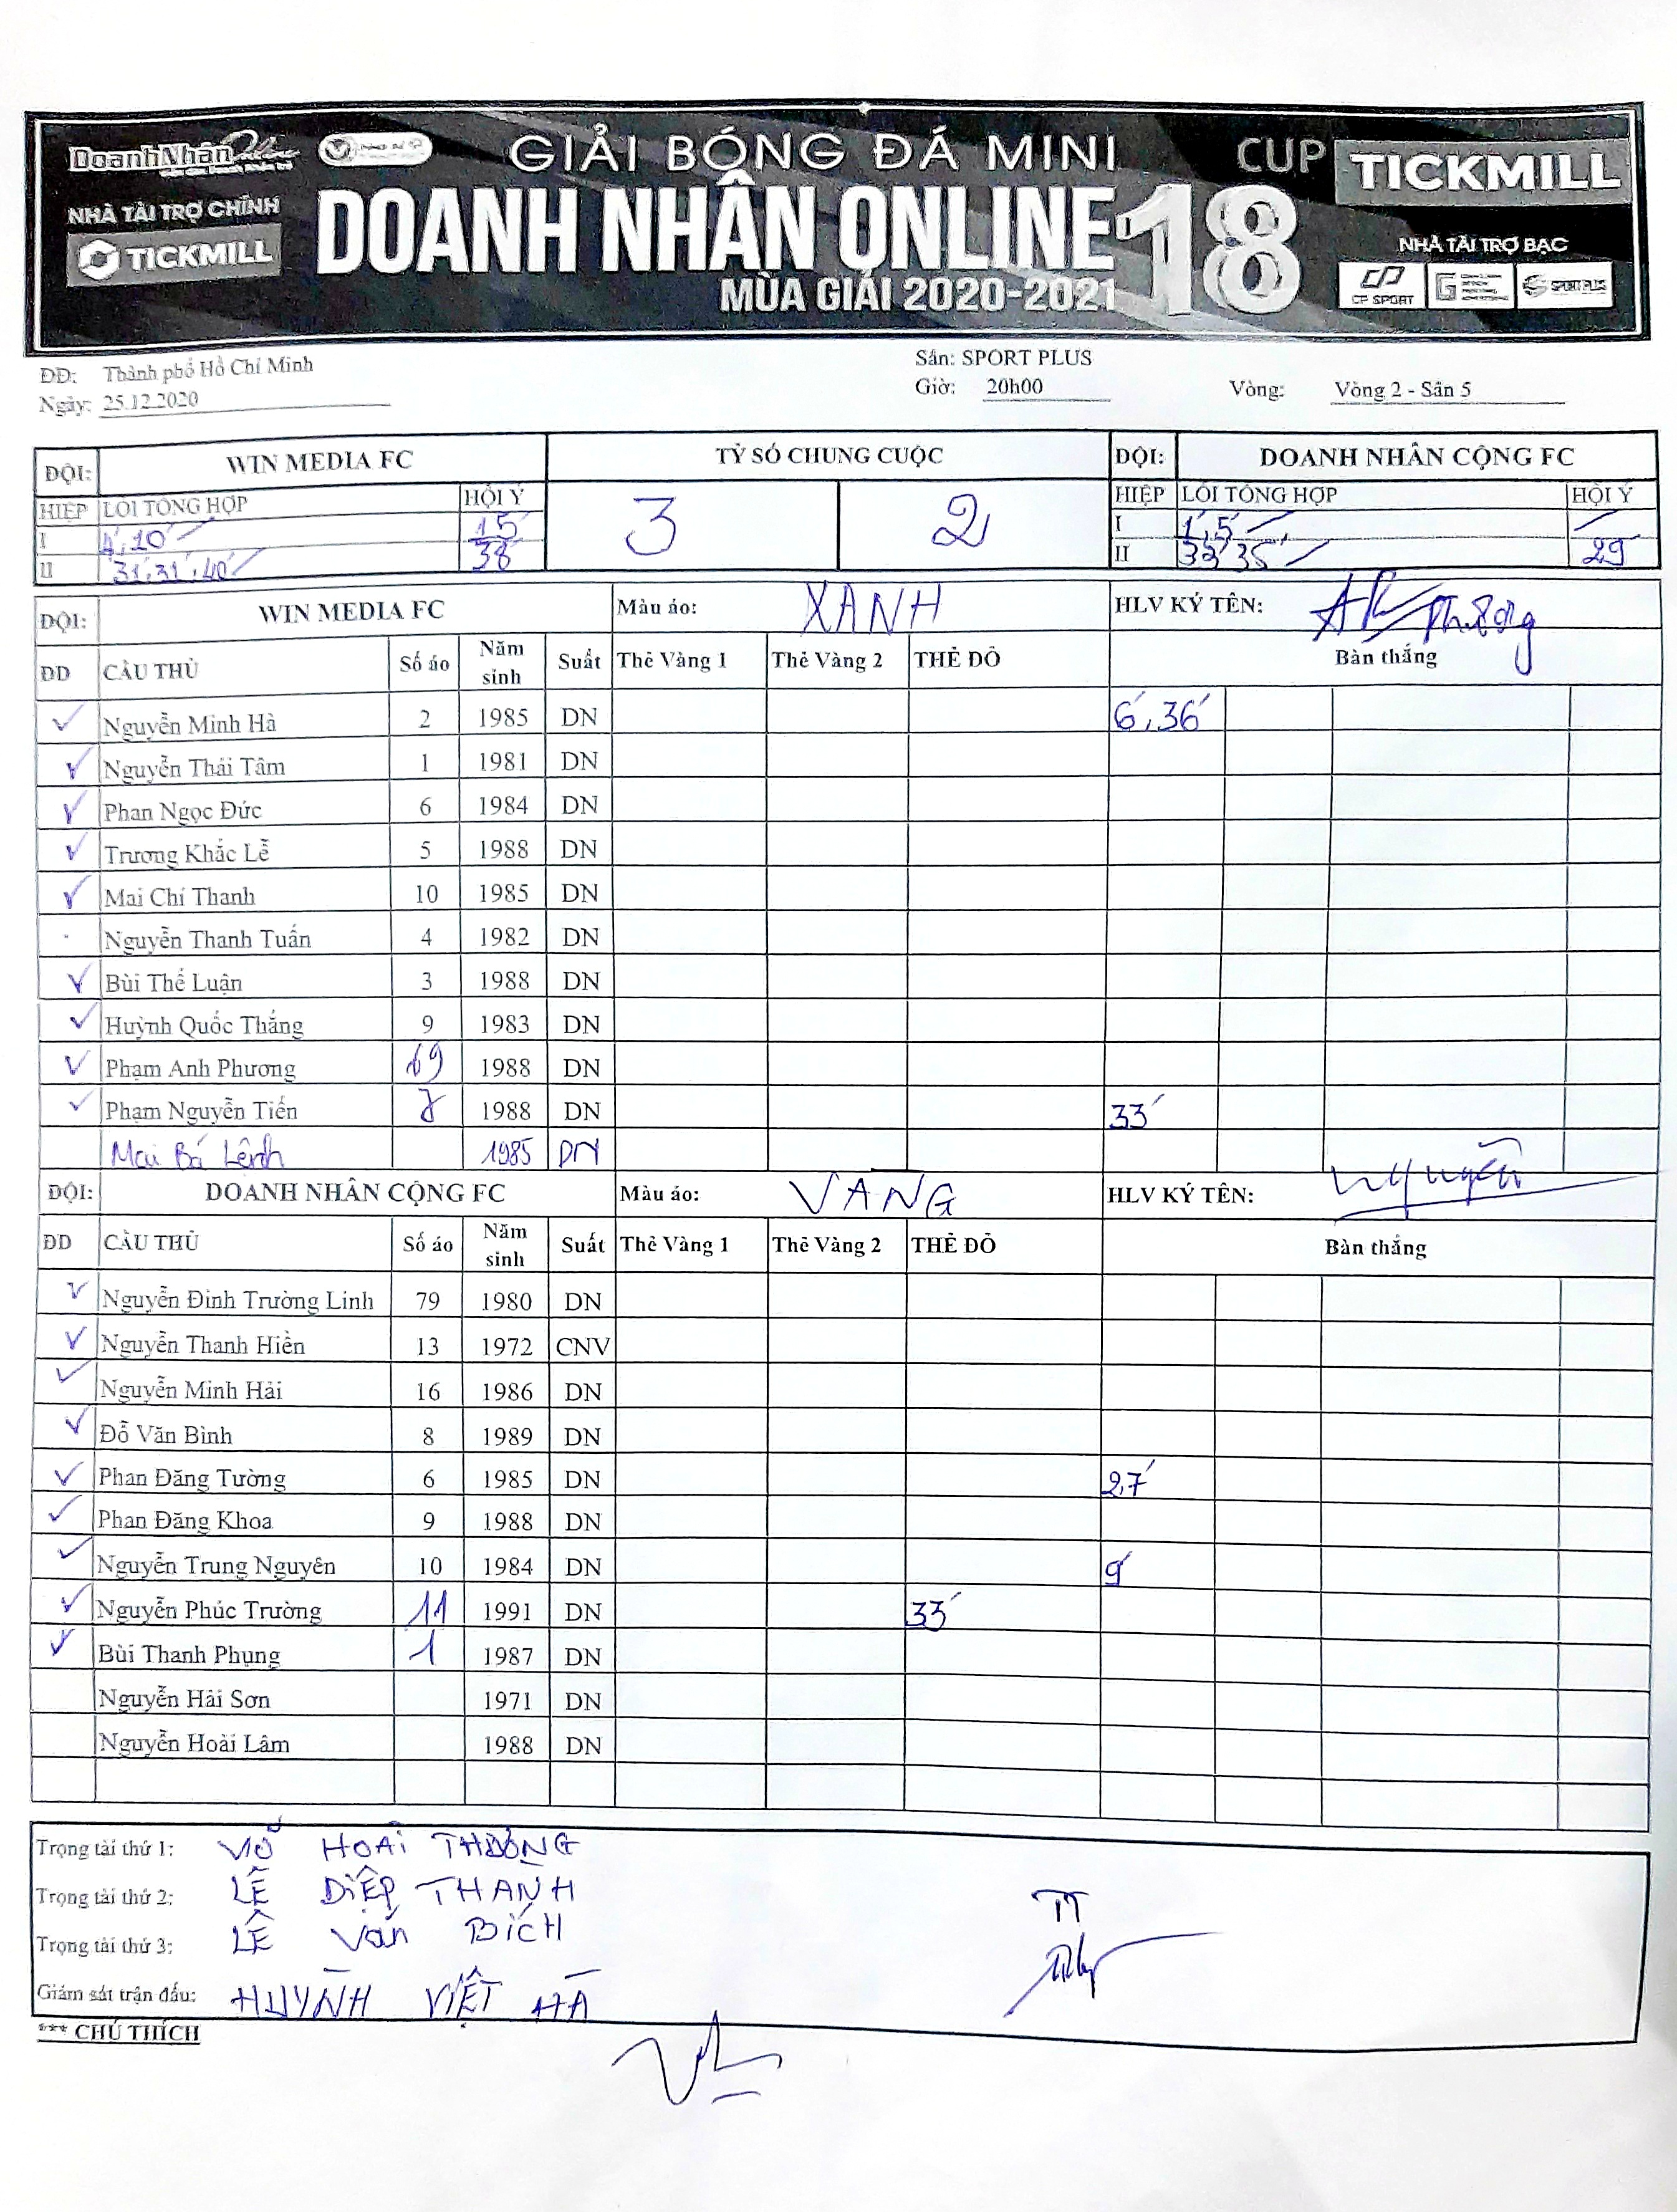 DoanhNhân Online
GIẢI BÓNG ĐÁ MINI
CUP TICKMILL
NHÀ TÀI TRỢ CHÍNH
TICKMILL
DOANH NHÂN ONLINE 18
MÙA GIẢI 2020-2021
NHÀ TÀI TRỢ BẠC
CP SPORT
SPORT PLUS
ĐĐ: Thành phố Hồ Chí Minh
Sân: SPORT PLUS
Ngày: 25.12.2020
Giờ: 20h00
Vòng: Vòng 2 - Sân 5
ĐỘI: WIN MEDIA FC TỶ SỐ CHUNG CUỘC ĐỘI: DOANH NHÂN CỘNG FC
HIỆP LỖI TỔNG HỢP HỘI Ý 3 2 HIỆP LỖI TỔNG HỢP HỘI Ý
I 4', 10' 15' I 1', 5'
II 31', 31', 40' 38' II 33' 35' 29'
ĐỘI: WIN MEDIA FC Màu áo: XANH HLV KÝ TÊN: Phương
ĐD CẦU THỦ Số áo Năm sinh Suất Thẻ Vàng 1 Thẻ Vàng 2 THẺ ĐỎ Bàn thắng
✓ Nguyễn Minh Hà 2 1985 DN 6', 36'
✓ Nguyễn Thái Tâm 1 1981 DN
✓ Phan Ngọc Đức 6 1984 DN
✓ Trương Khắc Lễ 5 1988 DN
✓ Mai Chí Thanh 10 1985 DN
Nguyễn Thanh Tuấn 4 1982 DN
✓ Bùi Thế Luận 3 1988 DN
✓ Huỳnh Quốc Thắng 9 1983 DN
✓ Phạm Anh Phương 69 1988 DN
✓ Phạm Nguyễn Tiến 8 1988 DN 33'
Mai Bá Lệnh 1985 DN
ĐỘI: DOANH NHÂN CỘNG FC Màu áo: VANG HLV KÝ TÊN: Nguyên
ĐD CẦU THỦ Số áo Năm sinh Suất Thẻ Vàng 1 Thẻ Vàng 2 THẺ ĐỎ Bàn thắng
✓ Nguyễn Đình Trường Linh 79 1980 DN
✓ Nguyễn Thanh Hiền 13 1972 CNV
✓ Nguyễn Minh Hải 16 1986 DN
✓ Đỗ Văn Bình 8 1989 DN
✓ Phan Đăng Tường 6 1985 DN 27'
✓ Phan Đăng Khoa 9 1988 DN
✓ Nguyễn Trung Nguyên 10 1984 DN 9'
✓ Nguyễn Phúc Trường 11 1991 DN 33'
✓ Bùi Thanh Phụng 1 1987 DN
Nguyễn Hải Sơn 1971 DN
Nguyễn Hoài Lâm 1988 DN
Trọng tài thứ 1: VÕ HOÀI THƯƠNG
Trọng tài thứ 2: LÊ DIỆP THANH
TT
Trọng tài thứ 3: LÊ Văn BÍCH
Giám sát trận đấu: HUỲNH VIỆT HÀ
*** CHÚ THÍCH